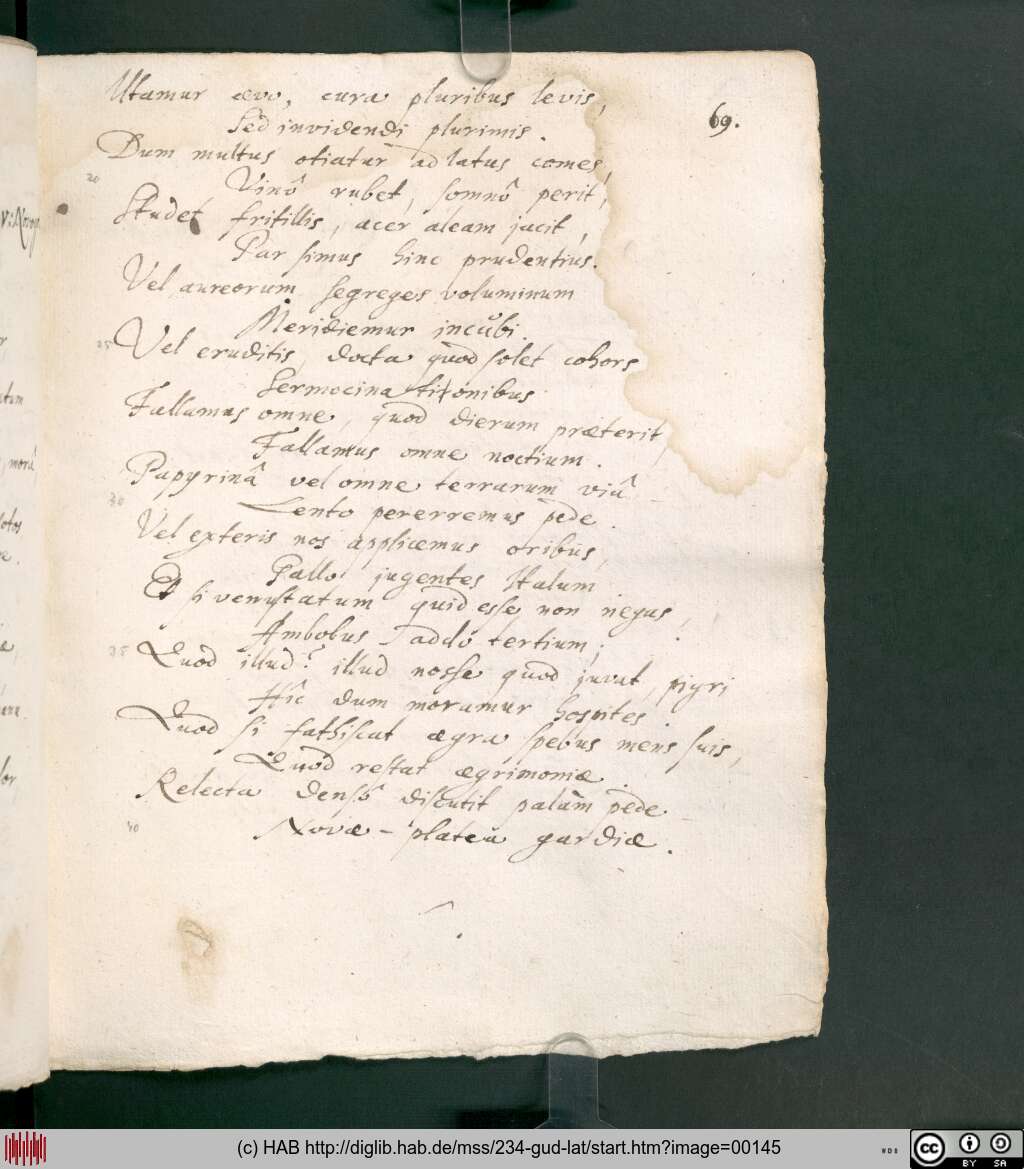 69.
Utamur ævo, cura pluribus levis,
Sed invidendi plurimis.
Dum multus otiatur ad latus comes,
20
Vinô rubet, somnô perit,
Studet fritillis, acer aleam jacit,
Par simus hinc prudentius.
Vel aureorum segreges voluminum
Meridiemur incubi.
25 Vel eruditis, docta quod solet cohors
Sermocinationibus
Fallamus omne, quod dierum præterit,
Fallamus omne noctium.
Papyrinâ vel omne terrarum viâ
30
Lento pererremus pede.
Vel exteris nos applicemus oribus,
Gallo jugentes Italum
Et si venustatum quid esse non negas,
Ambobus addo tertium;
35 Quod illud? illud nosse quod juvat, pigri
Hîc dum moramur hospites.
Quod si fathiscat ægra spebus mens suis,
Quod restat ægrimoniæ
Relecta densô discutit palàm pede
40
Novæ-plateâ gardiæ.
(c) HAB http://diglib.hab.de/mss/234-gud-lat/start.htm?image=00145
cc BY SA